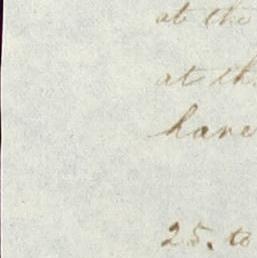 at the
at th
have
25. to